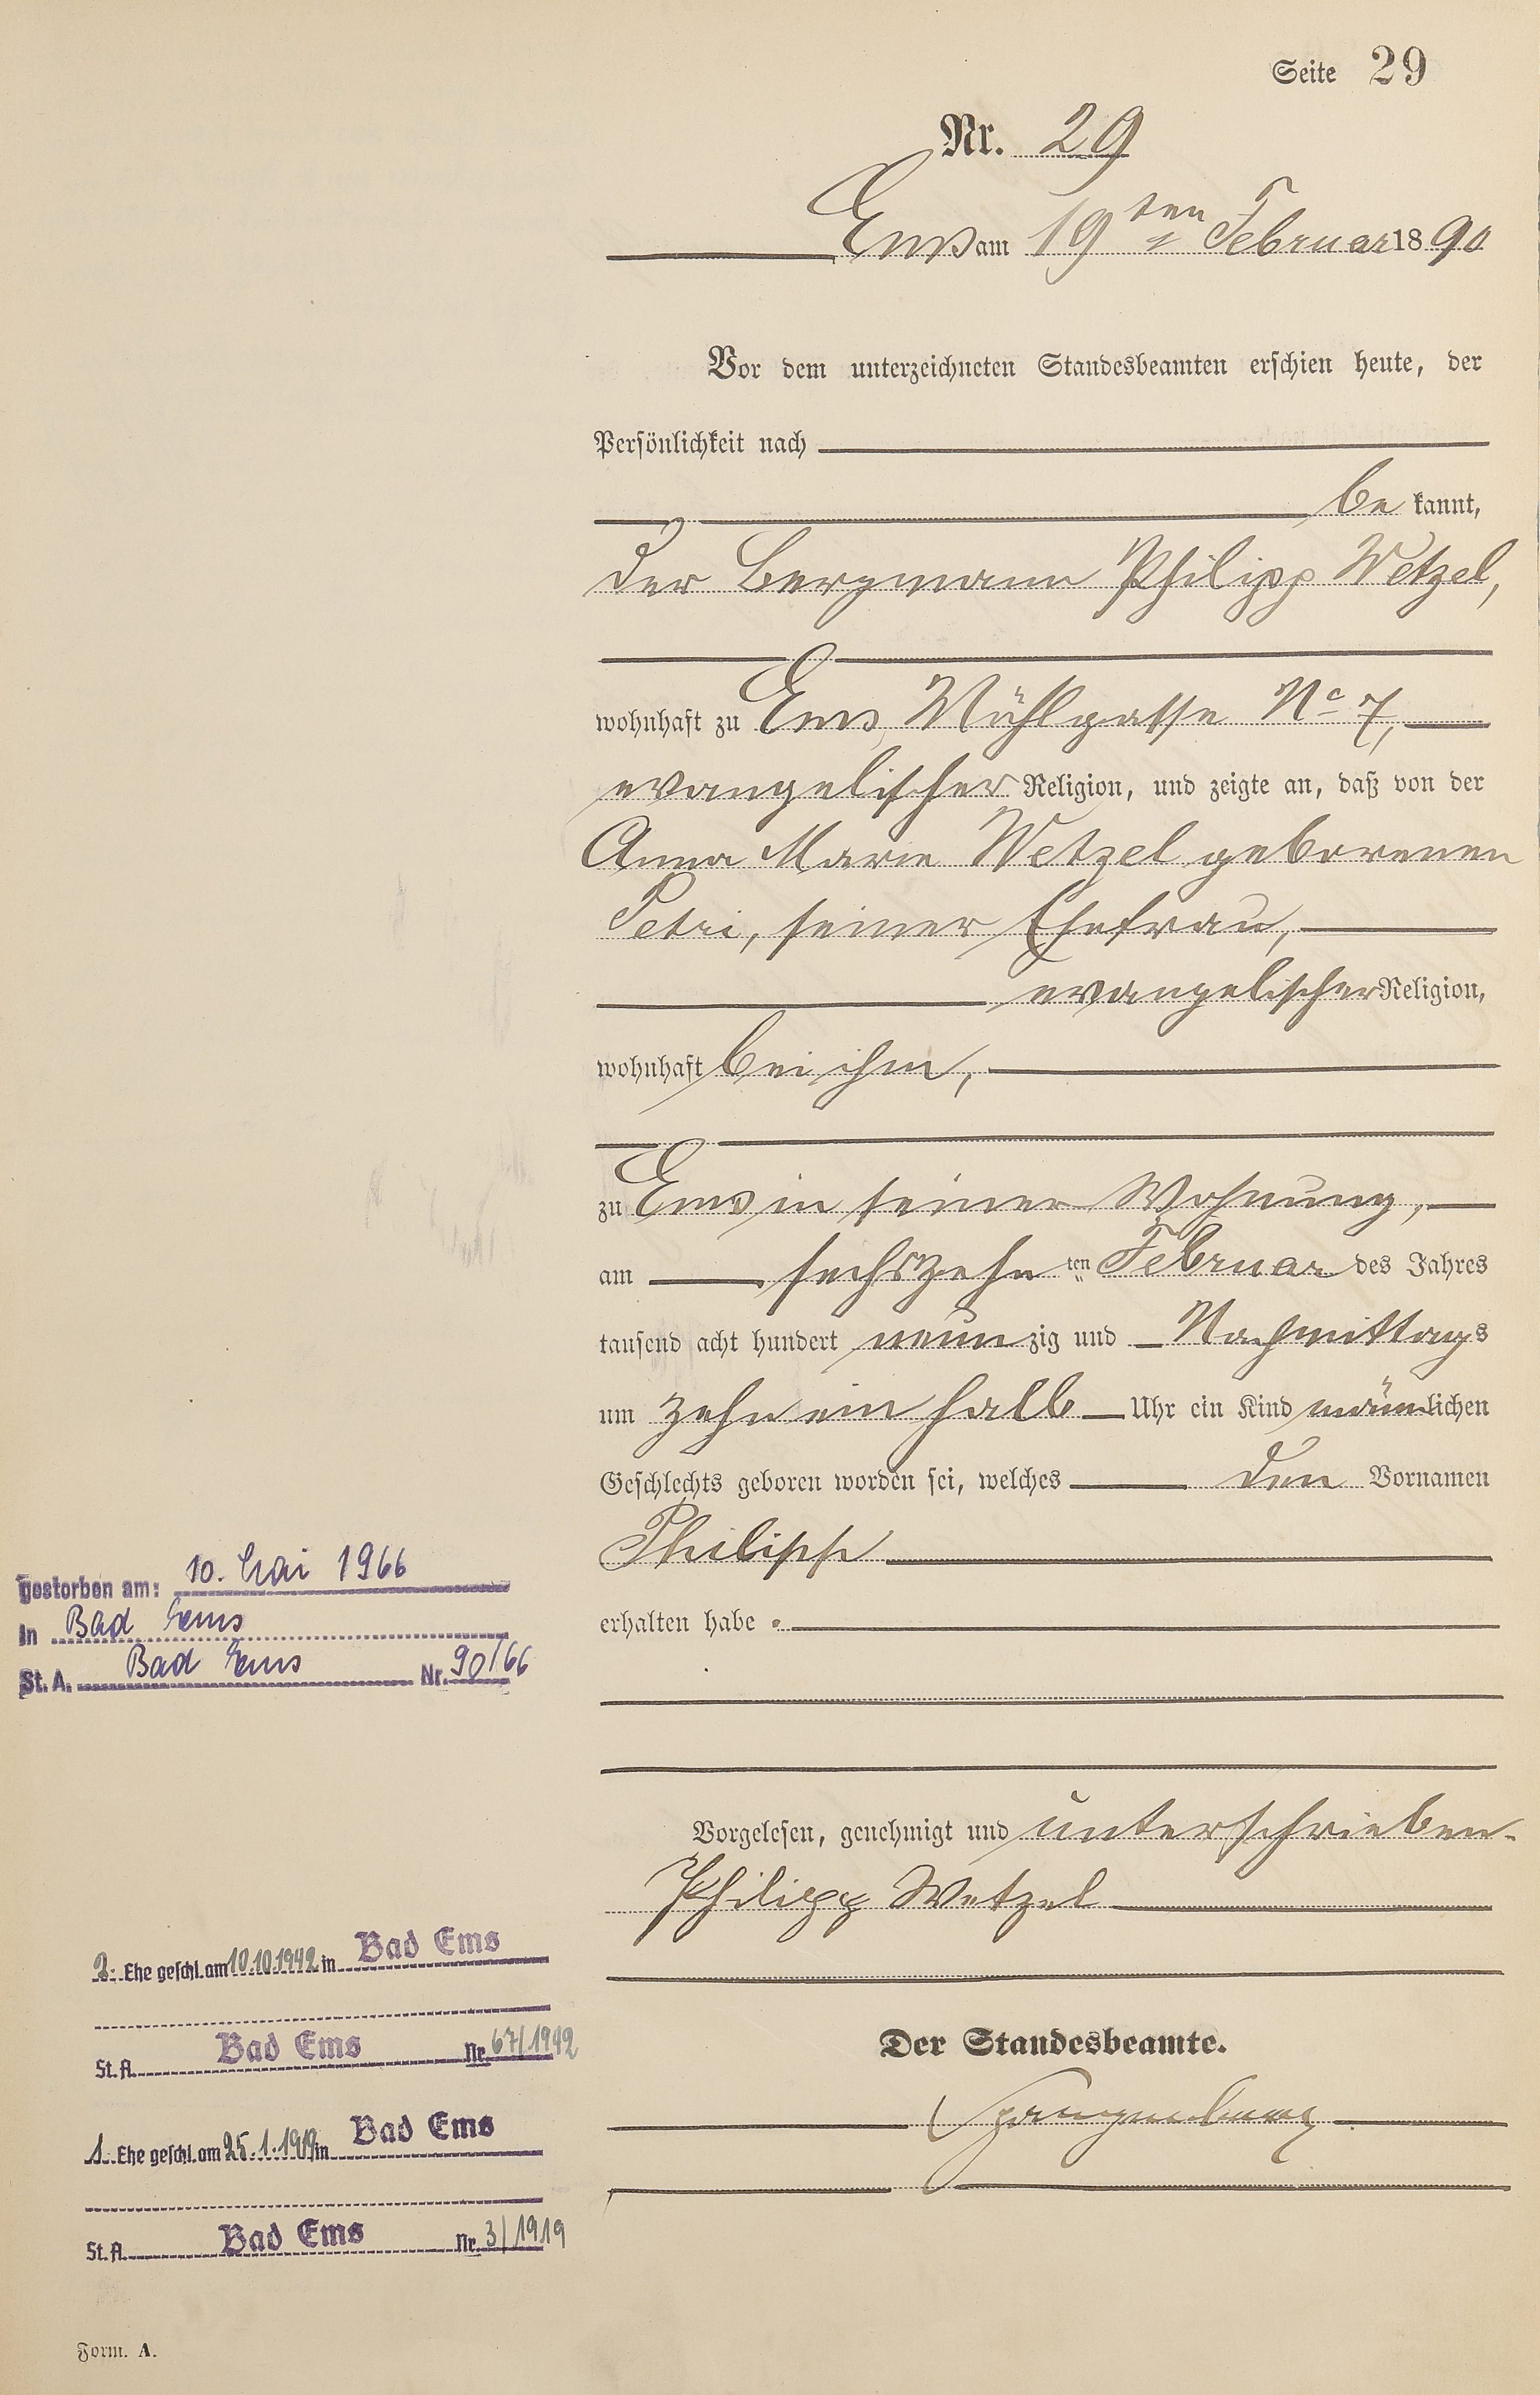 Seite 29
Nr. 29
Ems am 19ten Februar 1890
Vor dem unterzeichneten Standesbeamten erschien heute, der
Persönlichkeit nach
be kannt,
der Bergmann Philipp Wetzel,
wohnhaft zu Ems, Mühlgasse No 7,
evangelischer Religion, und zeigte an, daß von der
Anna Marie Wetzel geborenen
Petri, seiner Ehefrau,
evangelischer Religion,
wohnhaft bei ihm,
zu Ems in seiner Wohnung,
am sechszehn ten Februar des Jahres
tausend acht hundert neun zig und Nachmittags
um zehn ein halb Uhr ein Kind männlichen
Geschlechts geboren worden sei, welches den Vornamen
Philipp
erhalten habe.
Vorgelesen, genehmigt und unterschrieben.
Philipp Wetzel
Der Standesbeamte.
Spangenberg
gestorben am: 10. Mai 1966
in Bad Ems
St. A. Bad Ems Nr. 90/66
2. Ehe geschl. am 10.10.1942 in Bad Ems
St. A. Bad Ems Nr. 67/1942
1. Ehe geschl. am 25.1.1919 in Bad Ems
St. A. Bad Ems Nr. 3/1919
Form. A.